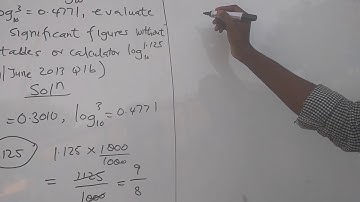 log₁₀3 = 0.4771, evaluate
significant figures without
tables or calculator log₁₀1.125
June 2013 Q1b)
Soln
= 0.3010, log₁₀3 = 0.4771
125 1.125 × 1000/1000
= 1125/1000 = 9/8